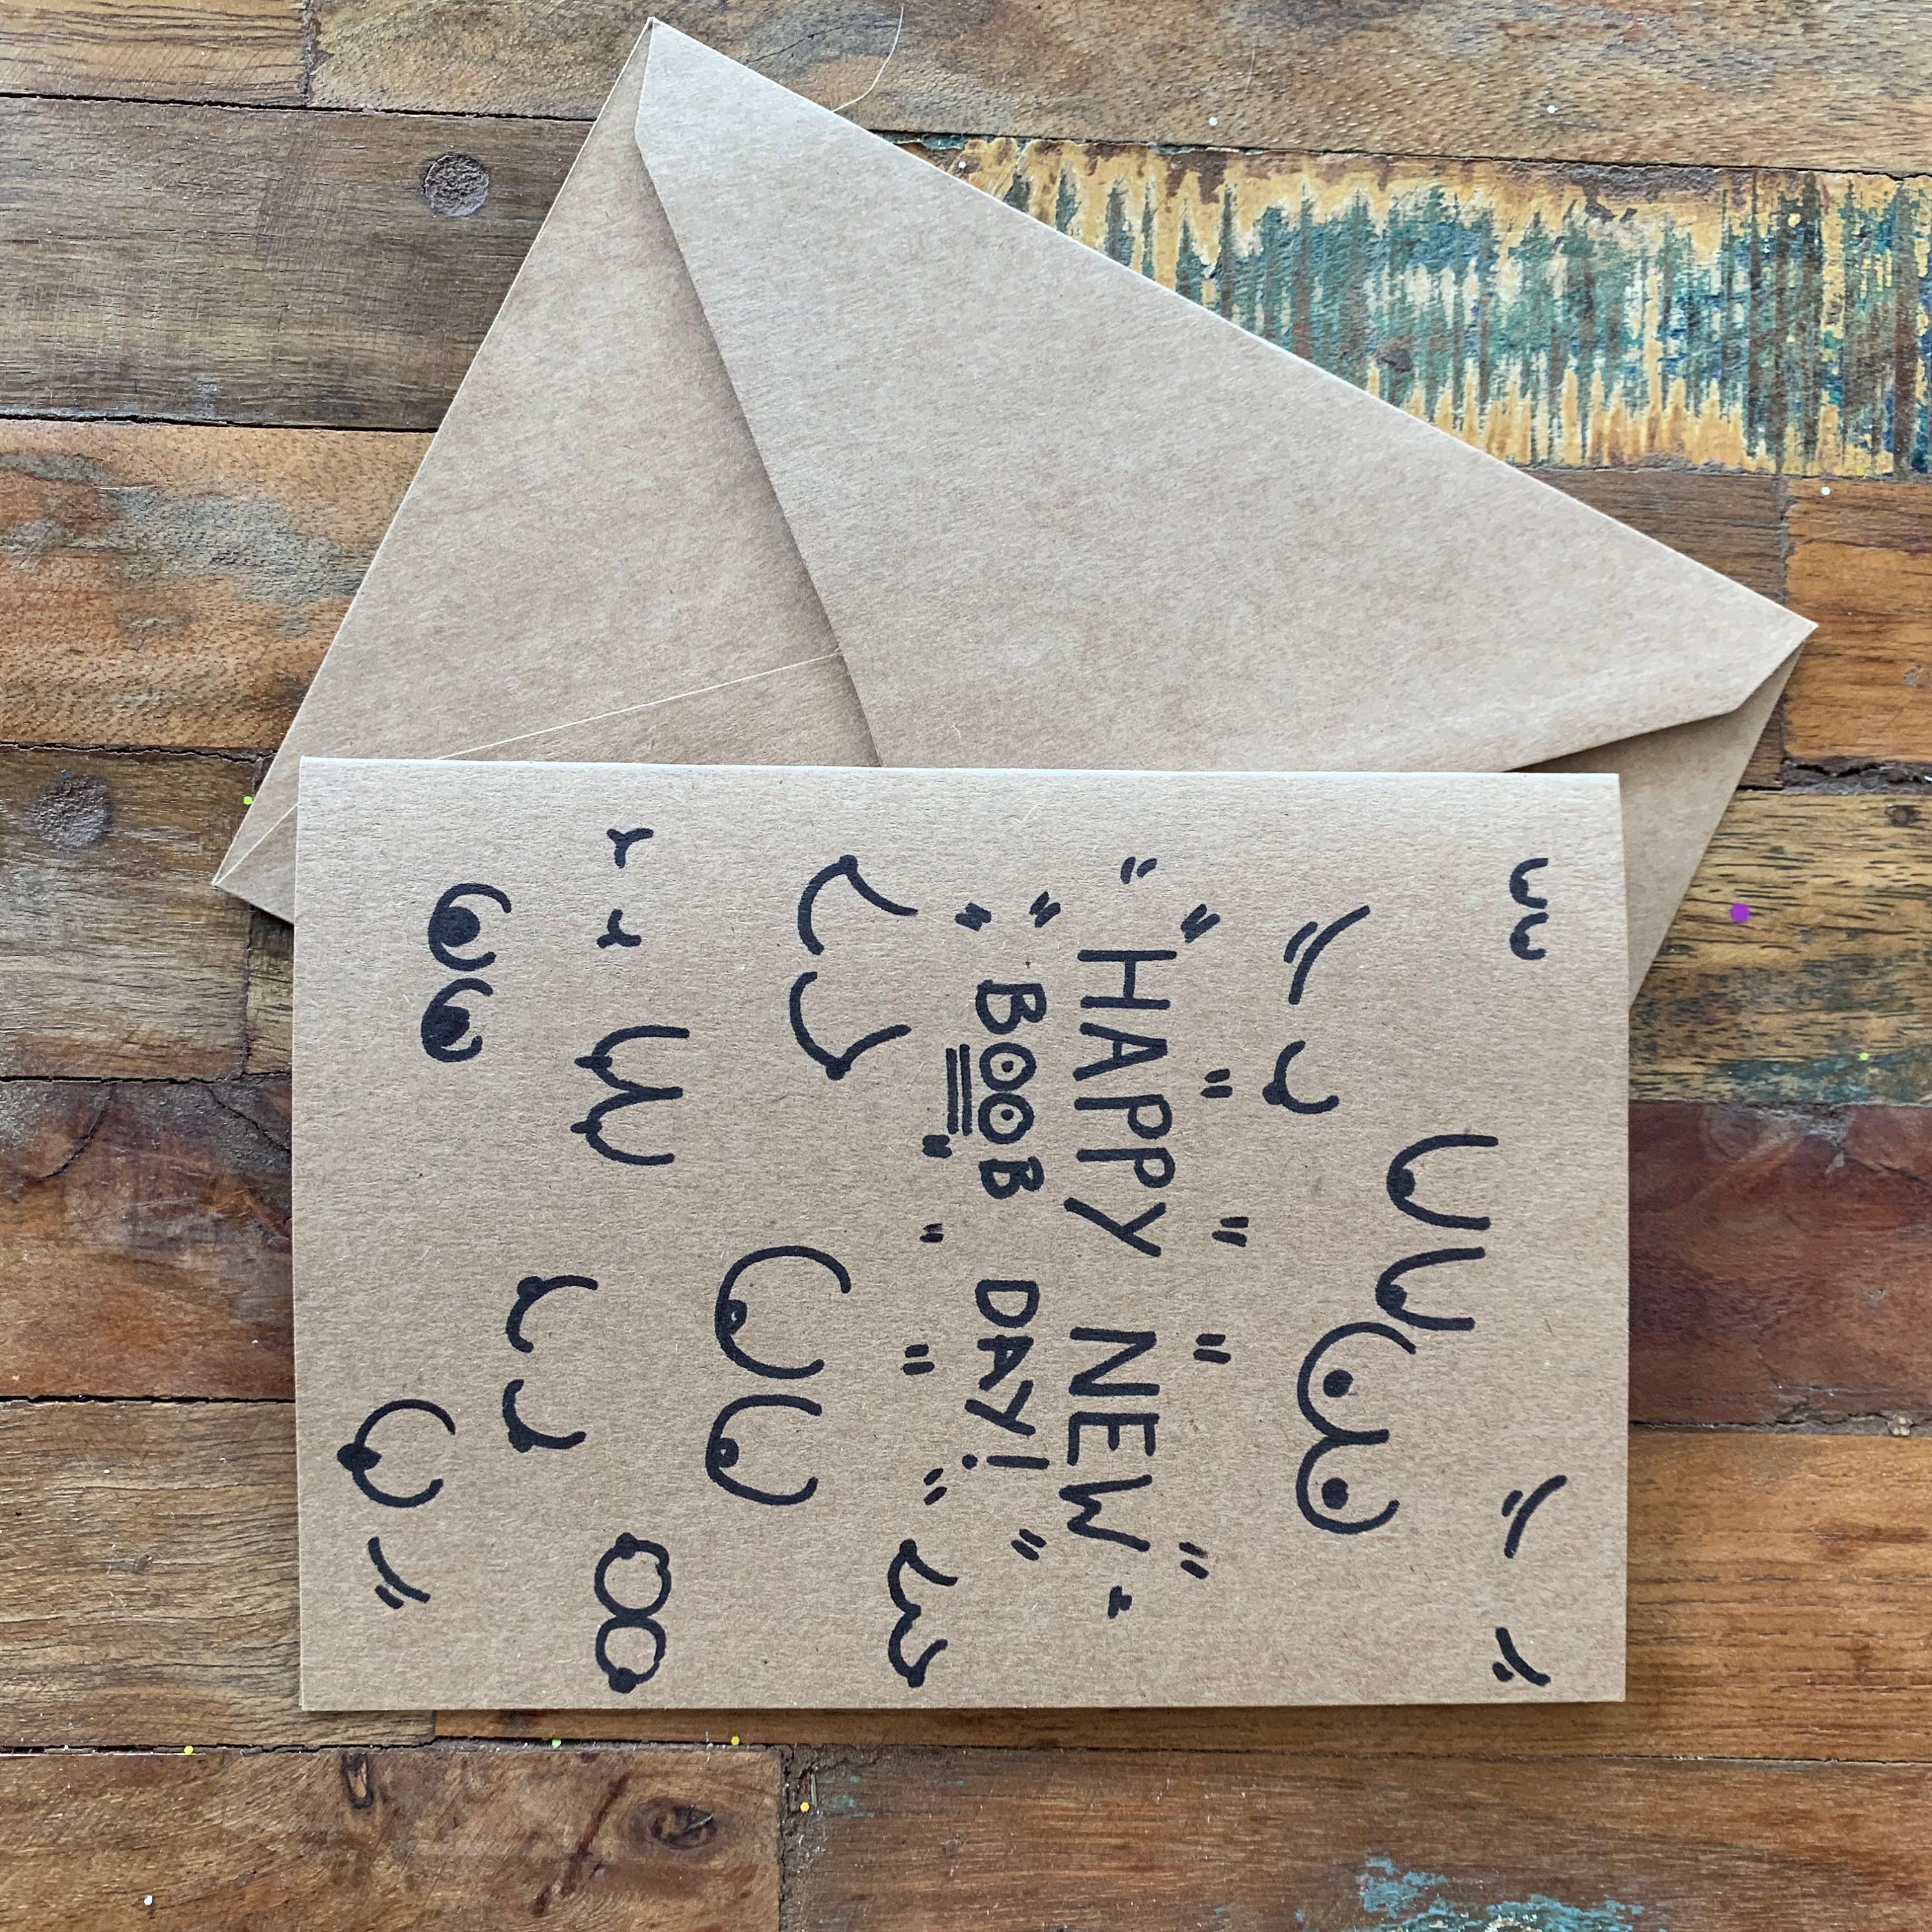 HAPPY NEW-
BOOB DAY!